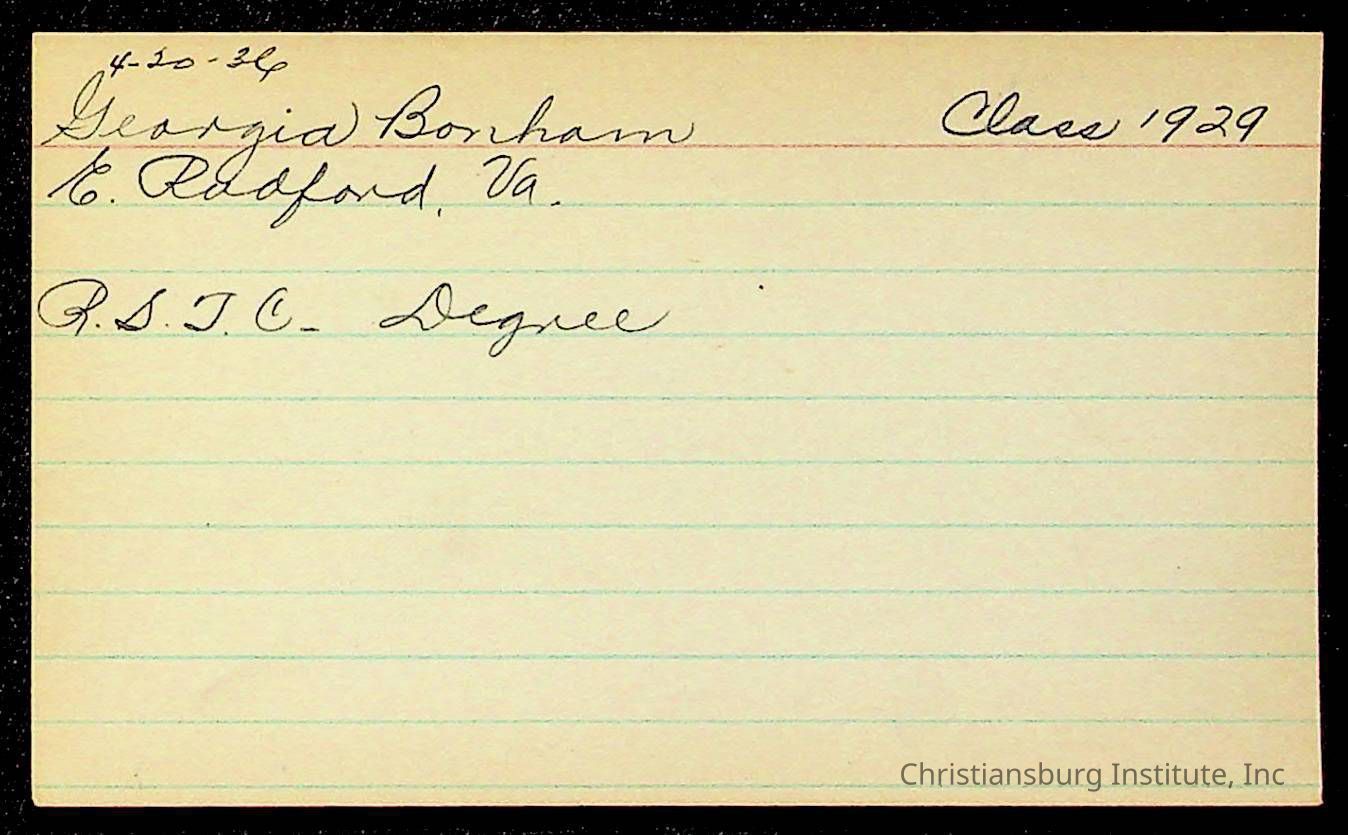 4-20-36
Georgia Bonham Class 1929
E. Radford, Va.
R.S.T.C- Degree
Christiansburg Institute, Inc